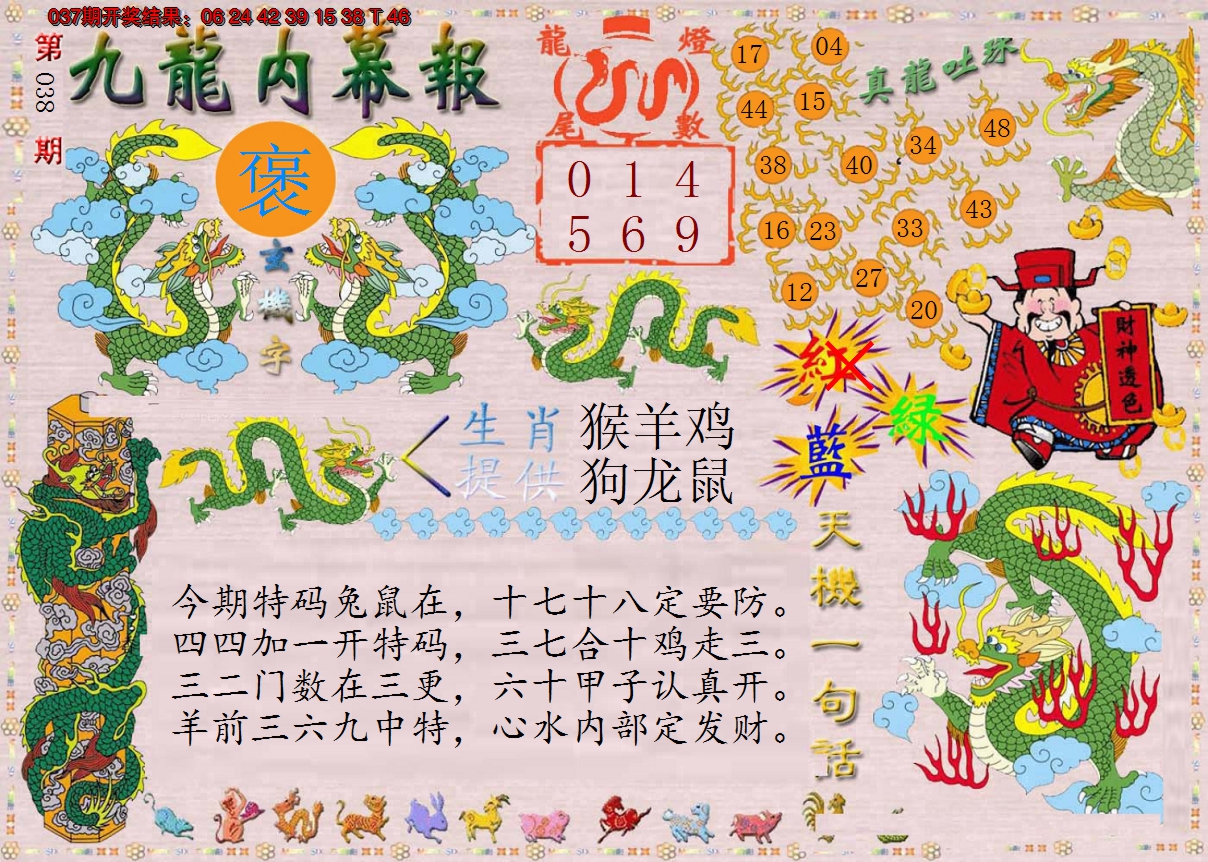 037期开奖结果：06 24 42 39 15 38 T 46
第038期
九龍内幕報
褒
玄機字
龍燈尾數
0 1 4
5 6 9
真龍吐珠
17 04
44 15
38 40 34 48
16 23 33 43
12 27 20
財神透色
紅
綠
藍
生肖 猴羊鸡
提供 狗龙鼠
天機一句話
今期特码兔鼠在，十七十八定要防。
四四加一开特码，三七合十鸡走三。
三二门数在三更，六十甲子认真开。
羊前三六九中特，心水内部定发财。